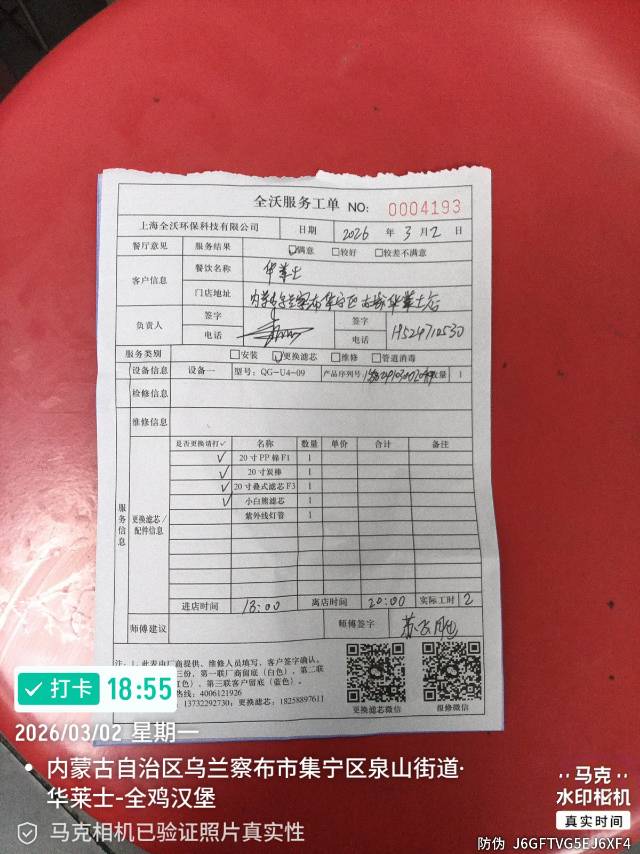 全沃服务工单 NO: 0004193
上海全沃环保科技有限公司 日期 2026 年 3 月 2 日
餐厅意见 服务结果 ☑满意 □较好 □较差不满意
客户信息 餐饮名称 华莱士
门店地址 华莱士店
负责人 签字 签字
电话 电话 19524712530
服务类别 □安装 ☑更换滤芯 □维修 □管道消毒
设备信息 设备一 型号:QG-U4-09 产品序列号 数量 1
检修信息
维修信息
服务信息 更换滤芯/配件信息
是否更换请打✓ 名称 数量 单价 合计 备注
✓ 20寸PP棉F1 1
✓ 20寸炭棒 1
✓ 20寸叠式滤芯F3 1
✓ 小白熊滤芯 1
紫外线灯管 1
进店时间 18:00 离店时间 20:00 实际工时 2
师傅建议 师傅签字
注:1、此表由厂商提供、维修人员填写,客户签字确认。
三份,第一联厂商留底(白色)、第二联
色)、第三联客户留底(蓝色)。
热线:4006121926
13732292730;更换滤芯:18258897611
更换滤芯微信 报修微信
打卡 18:55
2026/03/02 星期一
内蒙古自治区乌兰察布市集宁区泉山街道·
华莱士-全鸡汉堡
马克相机已验证照片真实性
马克
水印相机
真实时间
防伪 J6GFTVG5EJ6XF4